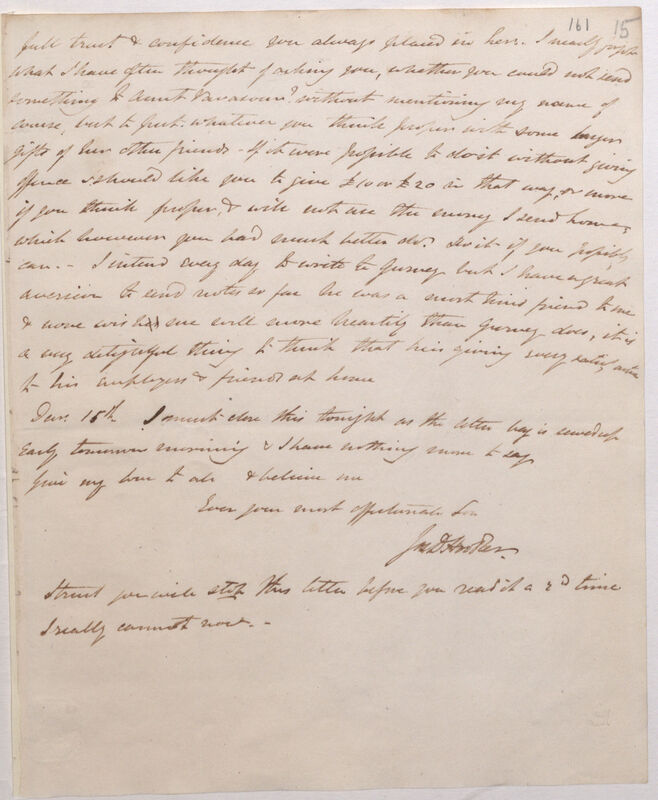 161 15
full trust & confidence you always placed in her. I nearly forgot
what I have often thought of asking you, whether you could not send
something to Aunt without mentioning my name of
course, but to put whatever you think proper with some larger
gifts of her other friends — If it were possible to do it without giving
offence I should like you to give £10 or £20 in that way, or more
if you think proper, & will not use the money I send home,
which however you had much better do. do it if you possibly
can. — I intend every day to write to Gurney but I have a great
aversion to send notes so far he was a most kind friend to me
& none wishes me well more heartily than Gurney does, it is
a very delightful thing to think that he is giving every satisfaction
to his employers & friends at home
15th I must close this tonight as the letter bag is sewed up
early tomorrow morning & I have nothing more to say
Give my love to all & believe me
Ever your most affectionate Son
Jos D Hooker.
I trust you will stop this letter before you read it a 2d time
I really cannot now. —